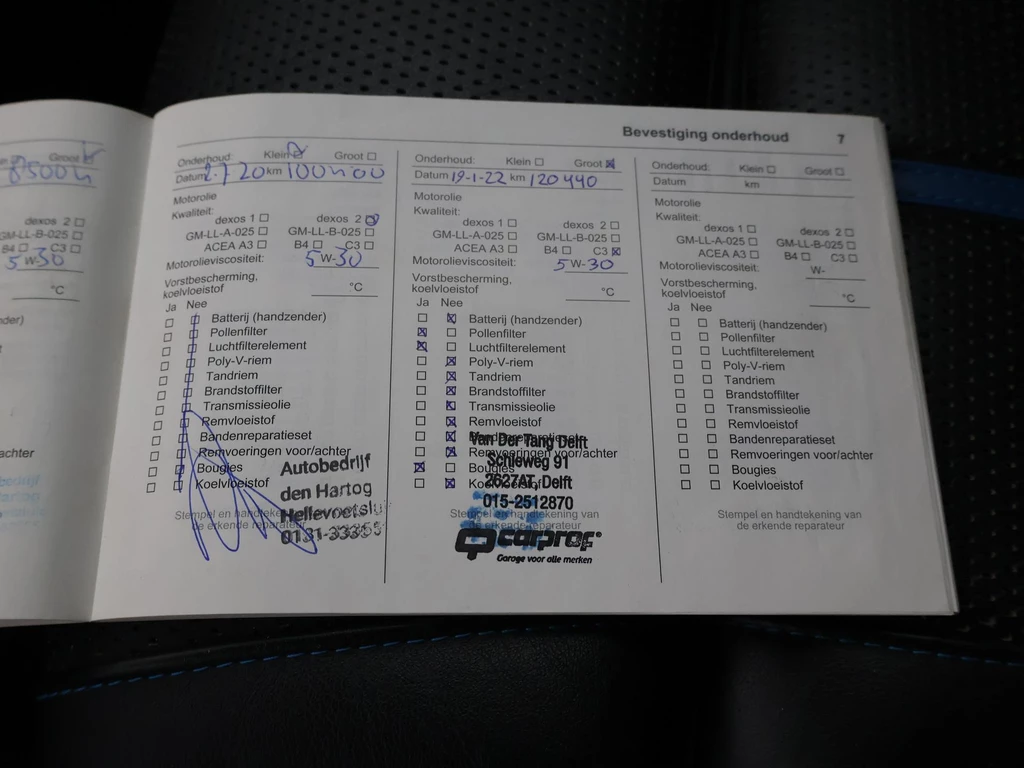 Bevestiging onderhoud 7
Groot
8500
dexos 2
GM-LL-B-025
B4 C3
5 W-30
°C
achter
Onderhoud: Klein Groot
Datum 20 km
Motorolie
Kwaliteit:
dexos 1 dexos 2
GM-LL-A-025 GM-LL-B-025
ACEA A3 B4 C3
Motorolieviscositeit: 5 W-30
Vorstbescherming,
koelvloeistof °C
Ja Nee
Batterij (handzender)
Pollenfilter
Luchtfilterelement
Poly-V-riem
Tandriem
Brandstoffilter
Transmissieolie
Remvloeistof
Bandenreparatieset
Remvoeringen voor/achter
Bougies
Koelvloeistof
Autobedrijf
den Hartog
Hellevoetslui
Stempel en handtekening
de erkende reparateur
Onderhoud: Klein Groot
Datum 19-1-22 km 120440
Motorolie
Kwaliteit:
dexos 1 dexos 2
GM-LL-A-025 GM-LL-B-025
ACEA A3 B4 C3
Motorolieviscositeit: 5 W-30
Vorstbescherming,
koelvloeistof °C
Ja Nee
Batterij (handzender)
Pollenfilter
Luchtfilterelement
Poly-V-riem
Tandriem
Brandstoffilter
Transmissieolie
Remvloeistof
Bandenreparatieset
Remvoeringen voor/achter
Bougies
Koelvloeistof
Van Der Tang Delft
Schieweg 91
2627AT, Delft
015-2512870
Stempel en handtekening van
de erkende reparateur
carprof
Garage voor alle merken
Onderhoud: Klein Groot
Datum km
Motorolie
Kwaliteit:
dexos 1 dexos 2
GM-LL-A-025 GM-LL-B-025
ACEA A3 B4 C3
Motorolieviscositeit: W-
Vorstbescherming,
koelvloeistof °C
Ja Nee
Batterij (handzender)
Pollenfilter
Luchtfilterelement
Poly-V-riem
Tandriem
Brandstoffilter
Transmissieolie
Remvloeistof
Bandenreparatieset
Remvoeringen voor/achter
Bougies
Koelvloeistof
Stempel en handtekening van
de erkende reparateur